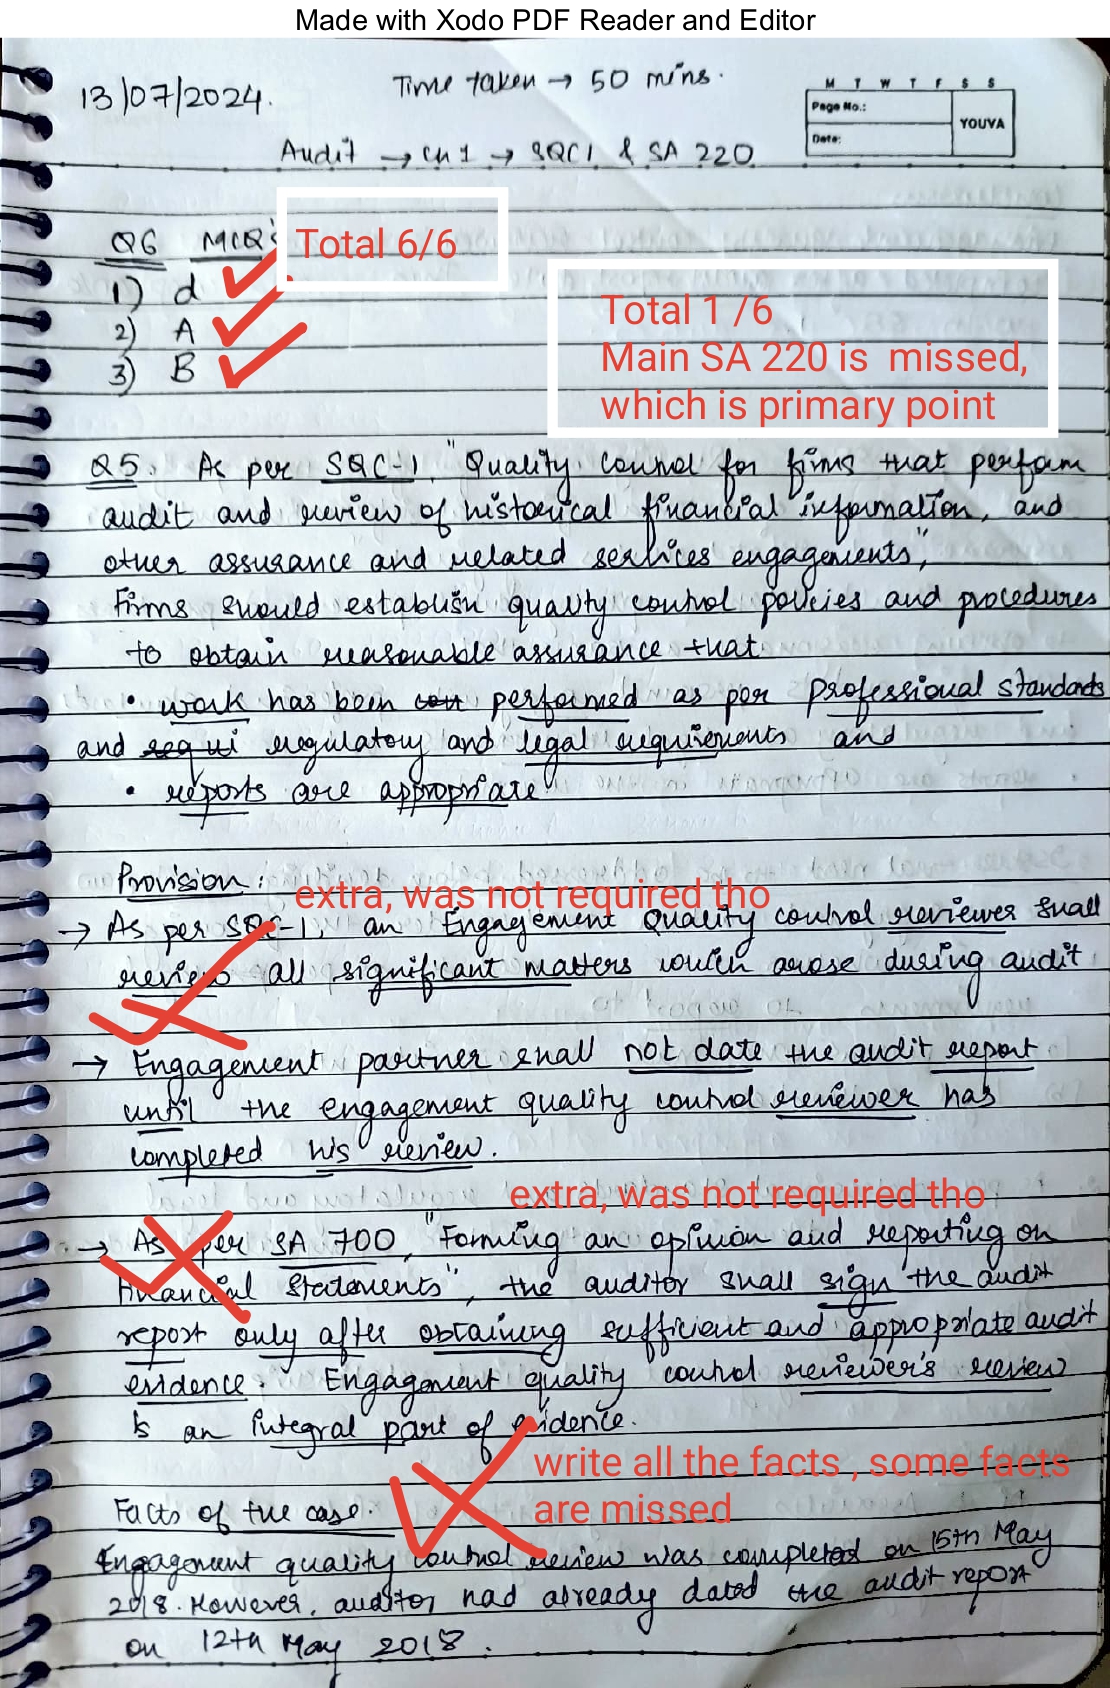 Made with Xodo PDF Reader and Editor
13/07/2024.
Time taken → 50 mins.
M T W T F S S
Page No.:
Date:
YOUVA
Audit → Ch 1 → SQC1 & SA 220
Q6 MCQ's
Total 6/6
1) d
2) A
3) B
Total 1 /6
Main SA 220 is missed,
which is primary point
Q5. As per SQC-1 "Quality control for firms that perform
audit and review of historical financial information, and
other assurance and related services engagements",
Firms should establish quality control policies and procedures
to obtain reasonable assurance that
• work has been performed as per professional standards
and regulatory and legal requirements and
• reports are appropriate
Provision:
extra, was not required tho
→ As per SQC-1, an Engagement Quality control reviewer shall
review all significant matters which arose during audit
→ Engagement partner shall not date the audit report
until the engagement quality control reviewer has
completed his review.
extra, was not required tho
→ As per SA 700, "Forming an opinion and reporting on
Financial Statements", the auditor shall sign the audit
report only after obtaining sufficient and appropriate audit
evidence. Engagement quality control reviewer's review
is an integral part of evidence.
write all the facts , some facts
are missed
Facts of the case.
Engagement quality control review was completed on 15th May
2018. However, auditor had already dated the audit report
on 12th May 2018.